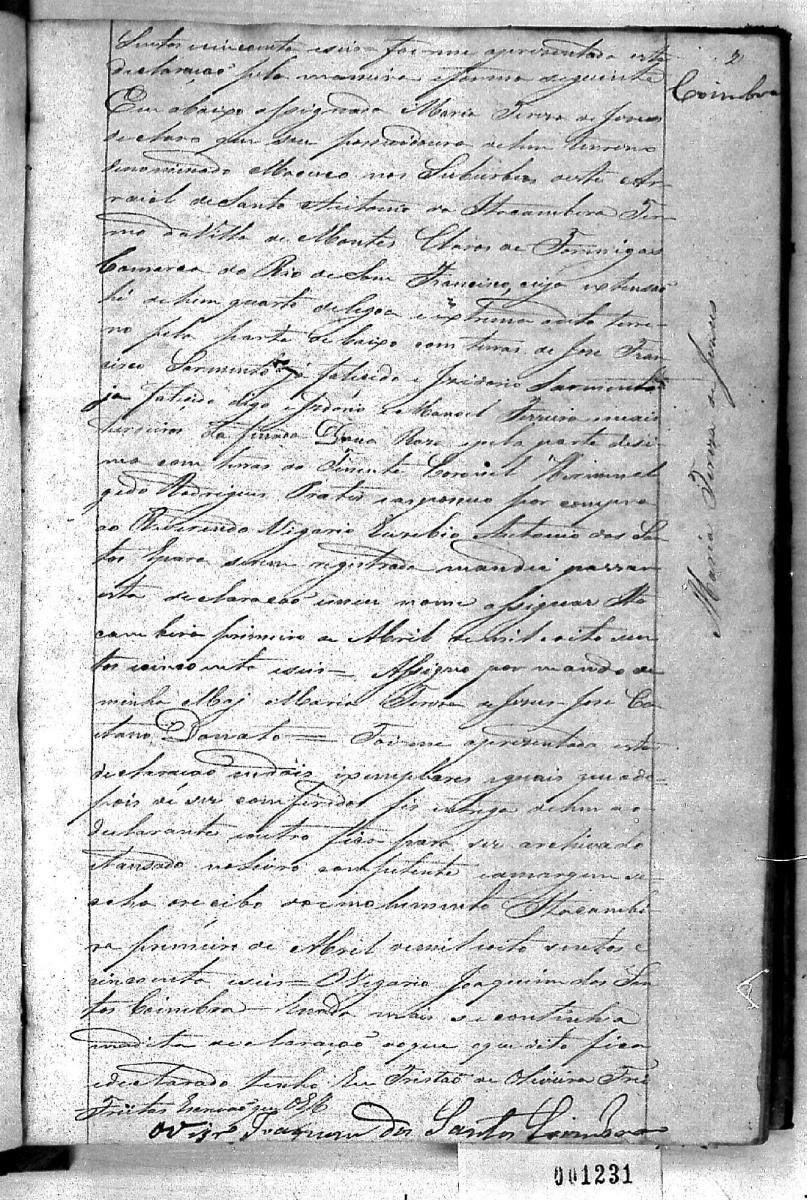 2
Coimbra
Sentos cincoenta eseis = foi-me apresentada esta
declaracaõ pela maneira eforma seguinte
Eu abaixo assignada Maria Tereza de Jesus
declaro que sou possuidora dehum terreno
denominado nos Suburbios deste Ar-
raial de Santo Antonio da Itacambira Ter-
mo daVilla de Montes Claros de Formigas
Comarca do Rio de Sam Francisco, cuja extensaõ
hé dehum quarto delegoa e extrema dito terre-
no pela parte de baixo com terras de José Fran-
cisco Sarmento já falicido e Izidorio Sarmento
ja falicido digo e Izidorio e Manoel Ferreira emais
terceiros da finada Dona Roza epela parte desi-
ma com terras do Tinente Coronel Hermenel
gildo Rodrigues Prates easpossuo por compra
ao Reverendo Vigario Euzebio Antonio dos San
tos Epara serem registrada mandei passar
esta declaracaõ emeu nome assignar Ita
cambira primeiro de Abril demil eoito sen
tos ecincoenta eseis = Assigno por mando de
minha Maj Maria Tereza de Jesus José Ca
etano Donato = Foi-me apresentada esta
declaracaõ emdois exemplares eguais quede-
pois dé ser comfiridos fis entrega dehum ao
declarante eoutro fica para ser archivado
elansado nolivro competente eamargem se
acha orecibo doemolumento Itacambi-
ra primeiro de Abril demil eoito sentos e
cincoenta eseis = OVigario Joaquim dos San
tos Coimbra = Enada mais se continha
nadita declaracaõ doque aqui dito fica
edeclarado tenho Eu Tristaõ de Oliveira
Freitas Escrivaõ que
OVigr.º Joaquim dos Santos Coimbra
Maria Tereza de Jesus
001231